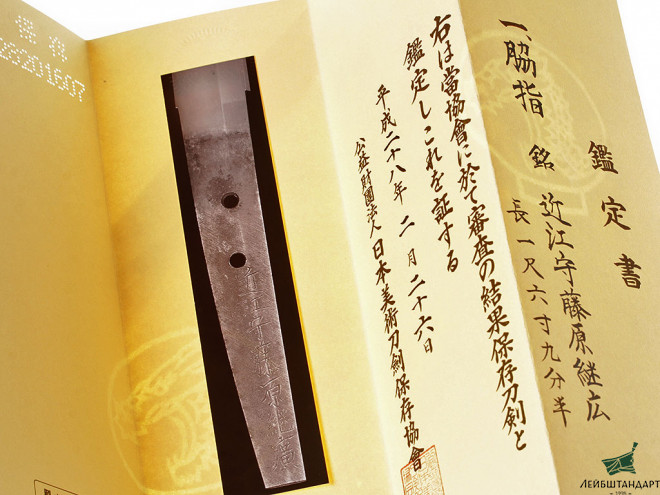 鑑定書
一、脇指 銘 近江守藤原継広
長一尺六寸九分半
右は當協會に於て審査の結果保存刀剣と
鑑定しこれを証する
平成二十八年二月二十六日
公益財團法人 日本美術刀劍保存協會
近江守藤原継広
ЛЕЙБШТАНДАРТ
1998